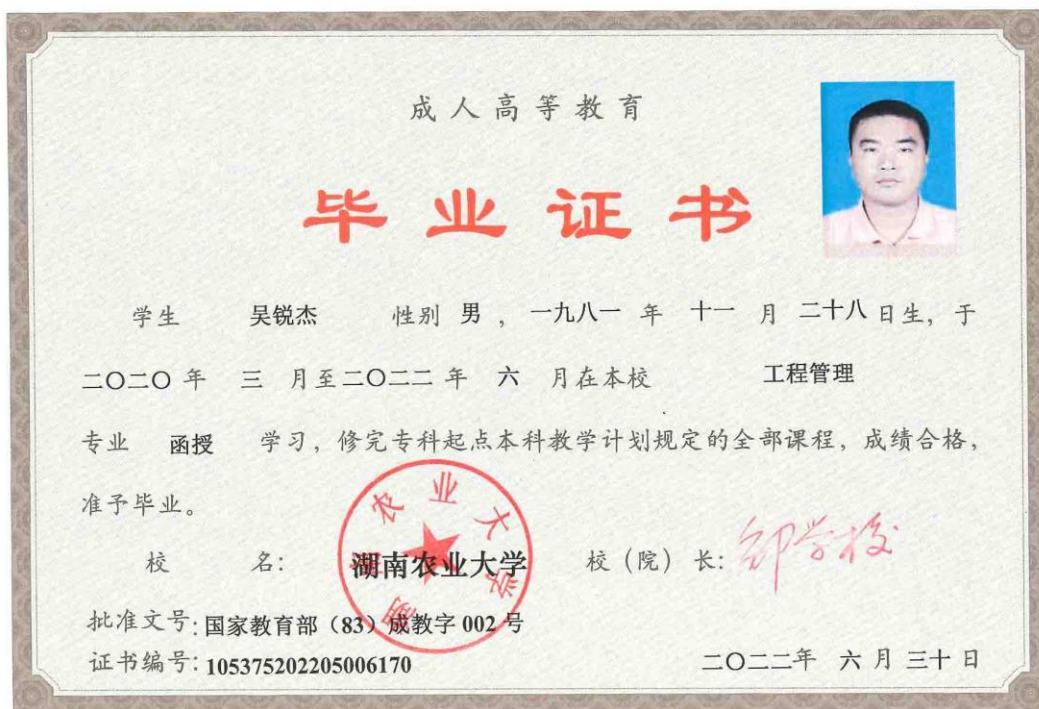 成人高等教育
毕业证书
学生 吴锐杰 性别 男，一九八一 年 十一 月 二十八 日生，于
二〇二〇 年 三 月至二〇二二 年 六 月在本校 工程管理
专业 函授 学习，修完专科起点本科教学计划规定的全部课程，成绩合格，
准予毕业。
校 名： 湖南农业大学 校（院）长：邹学校
湖南农业大学
批准文号：国家教育部（83）成教字 002 号
证书编号：105375202205006170 二〇二二年 六 月 三十 日